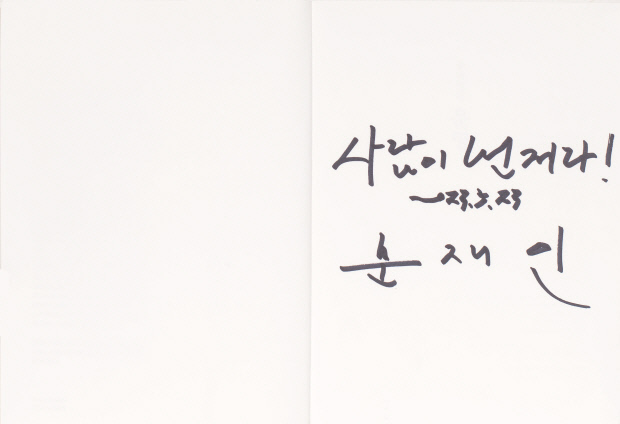 사람이 먼저다!
23.5.23
문재인